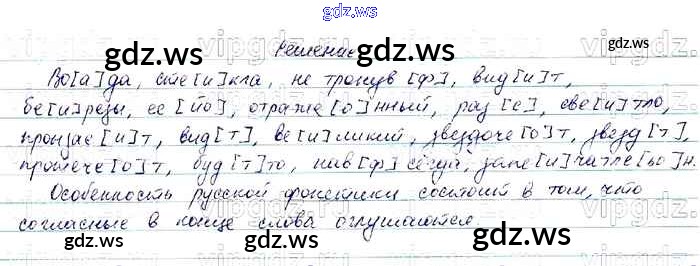 gdz.ws
Решение
Во[а]да, сте[и]кла, не тронув [ф], вид[и]т,
бе[и]резы, ее [йо], отраже[о]нный, раз [с], све[и]тло,
пронзае[и]т, вид[т], ве[и]ликий, звездоче[о]т, звезд [т],
протече[о]т, буд[т]то, нав[ф]сегда, запе[и]чатле[ьо]н.
Особенность русской фонетики состоит в том, что
согласные в конце слова оглушаются.
gdz.ws